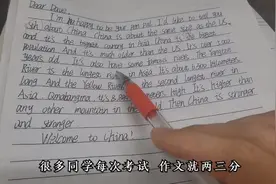 Dear Dave,
I'm happy to be your pen pal. I'd like to tell you
sth about China. China is about the same size as the US,
and it's the biggest country in Asia. China is the biggest
population. And it's much older than the US. It's over 5,000
years old. It's also have some famous rivers. The Yangtze
River is the largest river in Asia. It's about 6,300 kilometers
long. And the Yellow River is the second largest river in
Asia. Qomolangma, it's 8,8 high. It's higher than
any other mountain in the world. Then China is stronger
and stronger
Welcome to China!
很多同学每次考试 作文就两三分